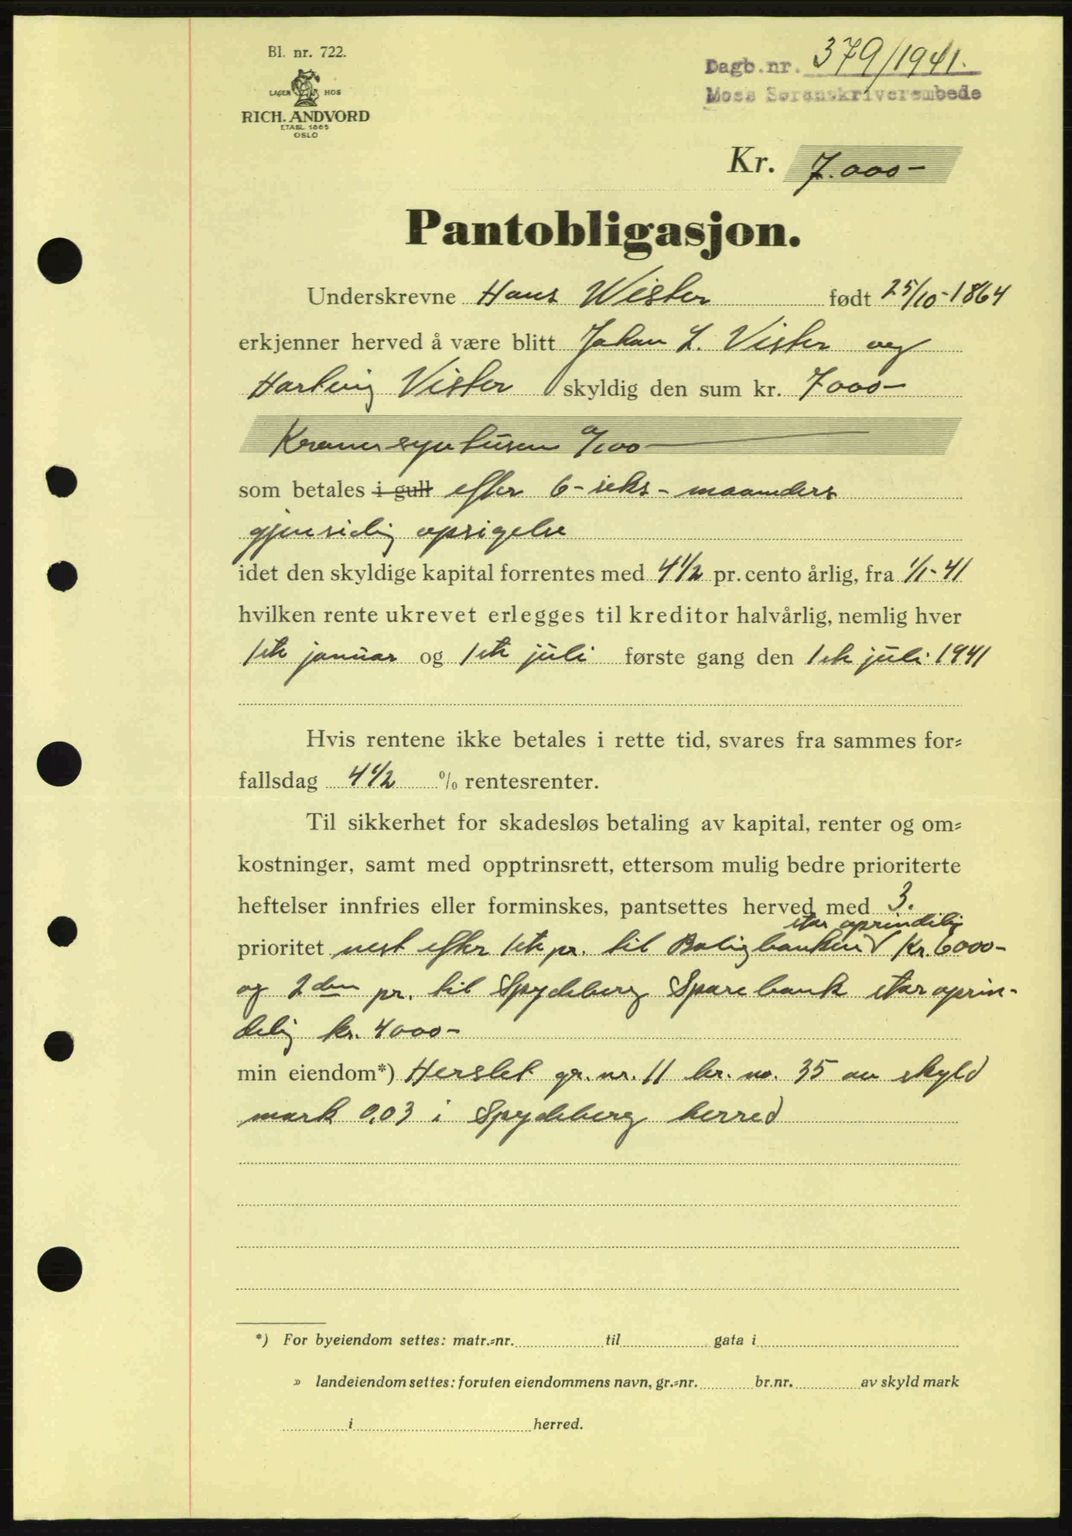 Bl. nr. 722.
LAGER HOS
RICH. ANDVORD
ETABL. 1865
OSLO
Dagb.nr. 379/1941.
Moss Sorenskriverembede
Kr. 7.000-
Pantobligasjon.
Underskrevne Hans Wister født 25/10-1864
erkjenner herved å være blitt Johan L. Vister og
Hartvig Vister skyldig den sum kr. 7000-
Kroner syv tusen 0/00
som betales i gull efter 6-seks-maaneders
gjensidig opsigelse
idet den skyldige kapital forrentes med 4 1/2 pr. cento årlig, fra 1/1-41
hvilken rente ukrevet erlegges til kreditor halvårlig, nemlig hver
1ste januar og 1ste juli første gang den 1ste juli 1941
Hvis rentene ikke betales i rette tid, svares fra sammes for=
fallsdag 4 1/2 % rentesrenter.
Til sikkerhet for skadesløs betaling av kapital, renter og om=
kostninger, samt med opptrinsrett, ettersom mulig bedre prioriterte
heftelser innfries eller forminskes, pantsettes herved med 3.
stor oprindelig
prioritet nest efter 1ste pr. til Boligbanken Kr. 6000-
og 2den pr. til Spydeberg Sparebank stor oprin-
delig kr. 4000-
min eiendom*) Herslet gr. nr. 11 br. no. 35 av skyld
mark 0,03 i Spydeberg herred
*) For byeiendom settes: matr.=nr. til gata i
» landeiendom settes: foruten eiendommens navn, gr.=nr. br.nr. av skyld mark
i herred.